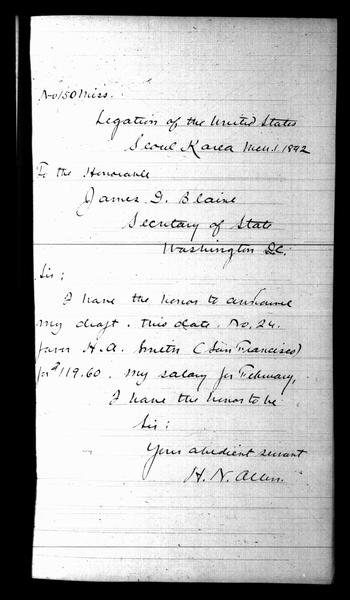 No 150 Miss.
Legation of the United States
Seoul Korea Mch. 1 1892
To the Honorable
James G. Blaine
Secretary of State
Washington D.C.
Sir;
I have the honor to announce
my draft. this date. No. 24.
favor H. A. Smith (San Francisco)
for $119.60. my salary for February,
I have the honor to be
Sir;
Your obedient servant
H. N. Allen.